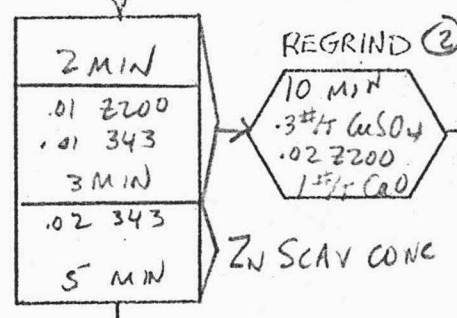 2 MIN
.01 Z200
.01 343
3 MIN
.02 343
5 MIN
REGRIND ②
10 MIN
.3#/T CuSO4
.02 Z200
1#/T CaO
ZN SCAV CONC